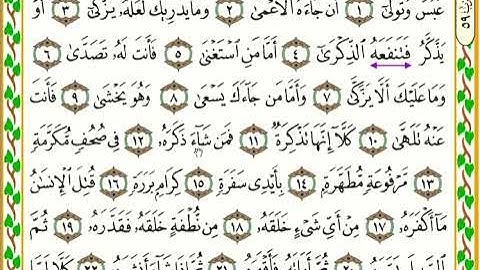 عَبَسَ وَتَوَلَّىٰ ١ أَن جَآءَهُ ٱلْأَعْمَىٰ ٢ وَمَا يُدْرِيكَ لَعَلَّهُۥ يَزَّكَّىٰ ٣ أَوْ
يَذَّكَّرُ فَتَنفَعَهُ ٱلذِّكْرَىٰ ٤ أَمَّا مَنِ ٱسْتَغْنَىٰ ٥ فَأَنتَ لَهُۥ تَصَدَّىٰ ٦
وَمَا عَلَيْكَ أَلَّا يَزَّكَّىٰ ٧ وَأَمَّا مَن جَآءَكَ يَسْعَىٰ ٨ وَهُوَ يَخْشَىٰ ٩ فَأَنتَ
عَنْهُ تَلَهَّىٰ ١٠ كَلَّآ إِنَّهَا تَذْكِرَةٌ ١١ فَمَن شَآءَ ذَكَرَهُۥ ١٢ فِى صُحُفٍ مُّكَرَّمَةٍ
١٣ مَّرْفُوعَةٍ مُّطَهَّرَةٍۭ ١٤ بِأَيْدِى سَفَرَةٍ ١٥ كِرَامٍۭ بَرَرَةٍ ١٦ قُتِلَ ٱلْإِنسَٰنُ
مَآ أَكْفَرَهُۥ ١٧ مِنْ أَىِّ شَىْءٍ خَلَقَهُۥ ١٨ مِن نُّطْفَةٍ خَلَقَهُۥ فَقَدَّرَهُۥ ١٩ ثُمَّ